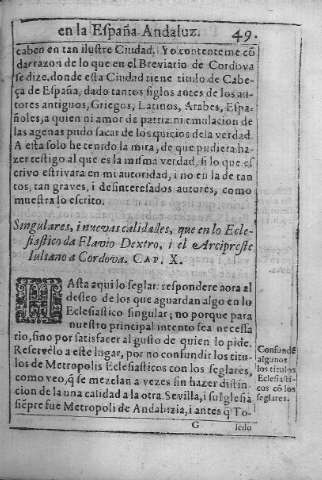 en la España Andaluz. 49.
caben en tan ilustre Ciudad, i Yo contenteme cō
dar razon de lo que en el Breviario de Cordova
se dize, donde esta Ciudad tiene titulo de Cabe-
ça de España, dado tantos siglos antes de los au-
tores antiguos, Griegos, Latinos, Arabes, Espa-
ñoles, a quien ni amor de patria: ni emulacion de
las agenas pudo sacar de los quicios de la verdad.
A esta solo he tenido la mira, de que pudiera ha-
zer testigo al que es la misma verdad, si lo que es
crivo estrivara en mi autoridad, i no en la de tan
tos, tan graves, i desinteresados autores, como
muestra lo escrito.
Singulares, i nuevas calidades, que en lo Ecle-
siastico da Flavio Dextro, i el Arcipreste
Iuliano a Cordova. CAP. X.
HAsta aqui lo seglar: respondere aora al
desseo de los que aguardan algo en lo
Ecclesiastico singular; no porque para
nuestro principal intento sea necessa
rio, sino por satisfacer al gusto de quien lo pide.
Reservelo a este lugar, por no confundir los titu-
los de Metropolis Eclesiasticos con los seglares,
como veo, q̃ se mezclan a vezes sin hazer distin-
cion de la una calidad a la otra. Sevilla, i su Iglesia
siēpre fue Metropoli de Andaluzia, i antes q̃ To-
Confundē
algunos
los titulos
Eclesiasti-
cos cō los
seglares.
G ledo